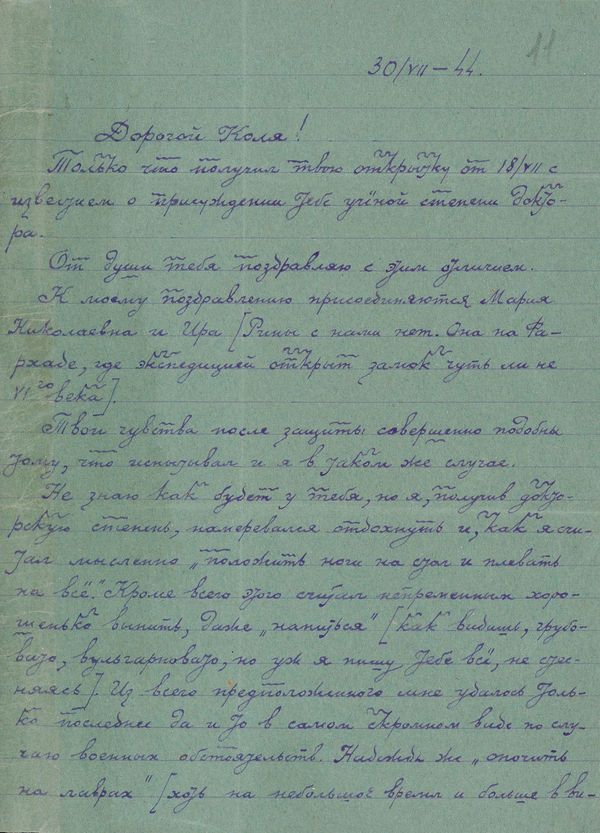 11
30/VII – 44.
Дорогой Коля!
Только что получил твою открытку от 18/VII с
известием о присуждении тебе учёной степени докто-
ра.
От души тебя поздравляю с этим отличием.
К моему поздравлению присоединяются Мария
Николаевна и Ира [Рины с нами нет. Она на Фа-
рхаде, где экспедицией открыт замок чуть ли не
VI го века].
Твои чувства после защиты совершенно подобны
тому, что испытывал и я в таком же случае.
Не знаю как будет у тебя, но я, получив докто-
рскую степень, намеревался отдохнуть и, как я счи-
тал мысленно „положить ноги на стол и плевать
на всё“. Кроме всего этого считал непременным хоро-
шенько выпить, даже „напиться“ [как видишь, грубо-
вато, вульгарновато, но уж я пишу тебе всё, не стес-
няясь]. Из всего предположенного мне удалось толь-
ко последнее да и то в самом скромном виде по слу-
чаю военных обстоятельств. Надежды же „опочить
на лаврах“ [хоть на небольшое время и больше в ви-